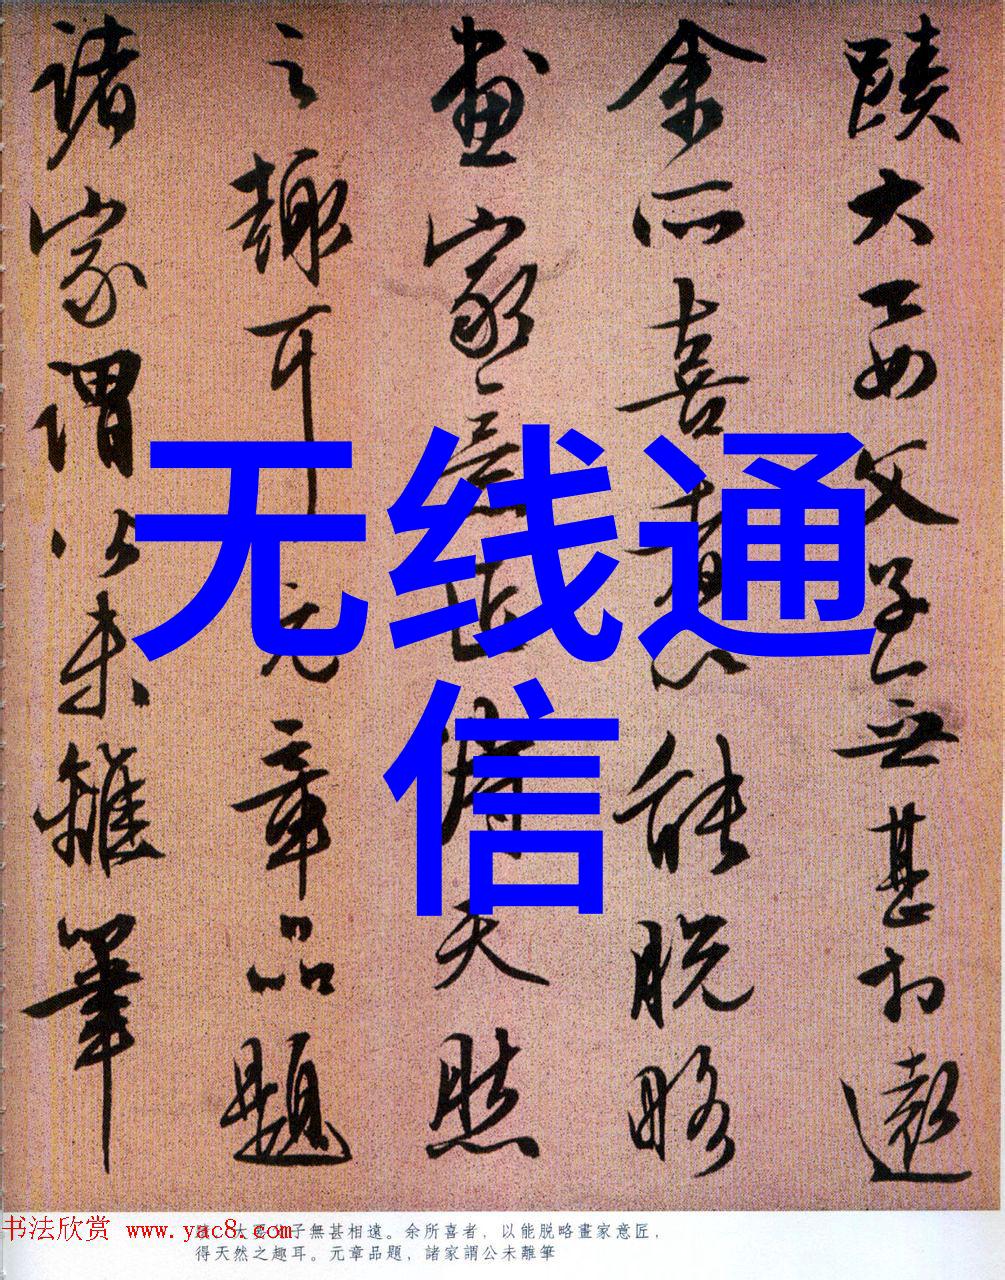 蹟大要父子無甚相遠
余所喜者以能脱略
畫家意匠得天然
之趣耳元章品題
諸家謂公未離筆
无线通
信
大要父子無甚相遠。余所喜者，以能脱略畫家意匠，
得天然之趣耳。元章品題，諸家謂公未離筆
书法欣赏 www.yac8.com